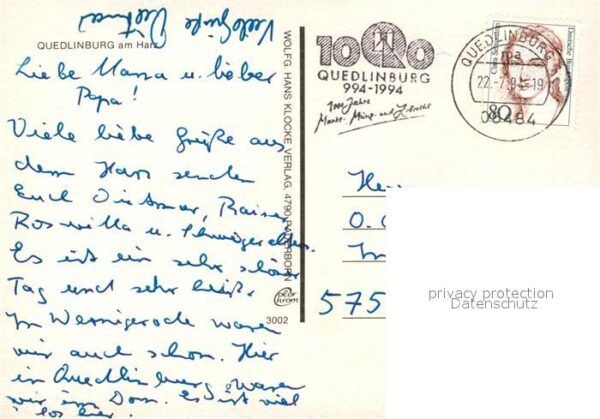 Viele Grüße
Dietmar
QUEDLINBURG am Harz
Liebe Mama u. lieber
Papa!
Viele liebe Grüße aus
dem Harz senden
Euch Dietmar, Rainer,
Roswitha u. Schwiegereltern.
Es ist ein sehr schöner
Tag und sehr heiß.
In Wernigerode waren
wir auch schon. Hier
in Quedlinburg waren
wir im Dom. Es ist viel
los hier.
WOLFG. HANS KLOCKE VERLAG, 4790 PADERBORN
3002
1000
QUEDLINBURG
994-1994
1000 Jahre
Markt-, Münz- und Zollrecht
QUEDLINBURG
ma
22.-7.94-19
06484
Deutsche Bundespost
80
O.
In
575
privacy protection
Datenschutz